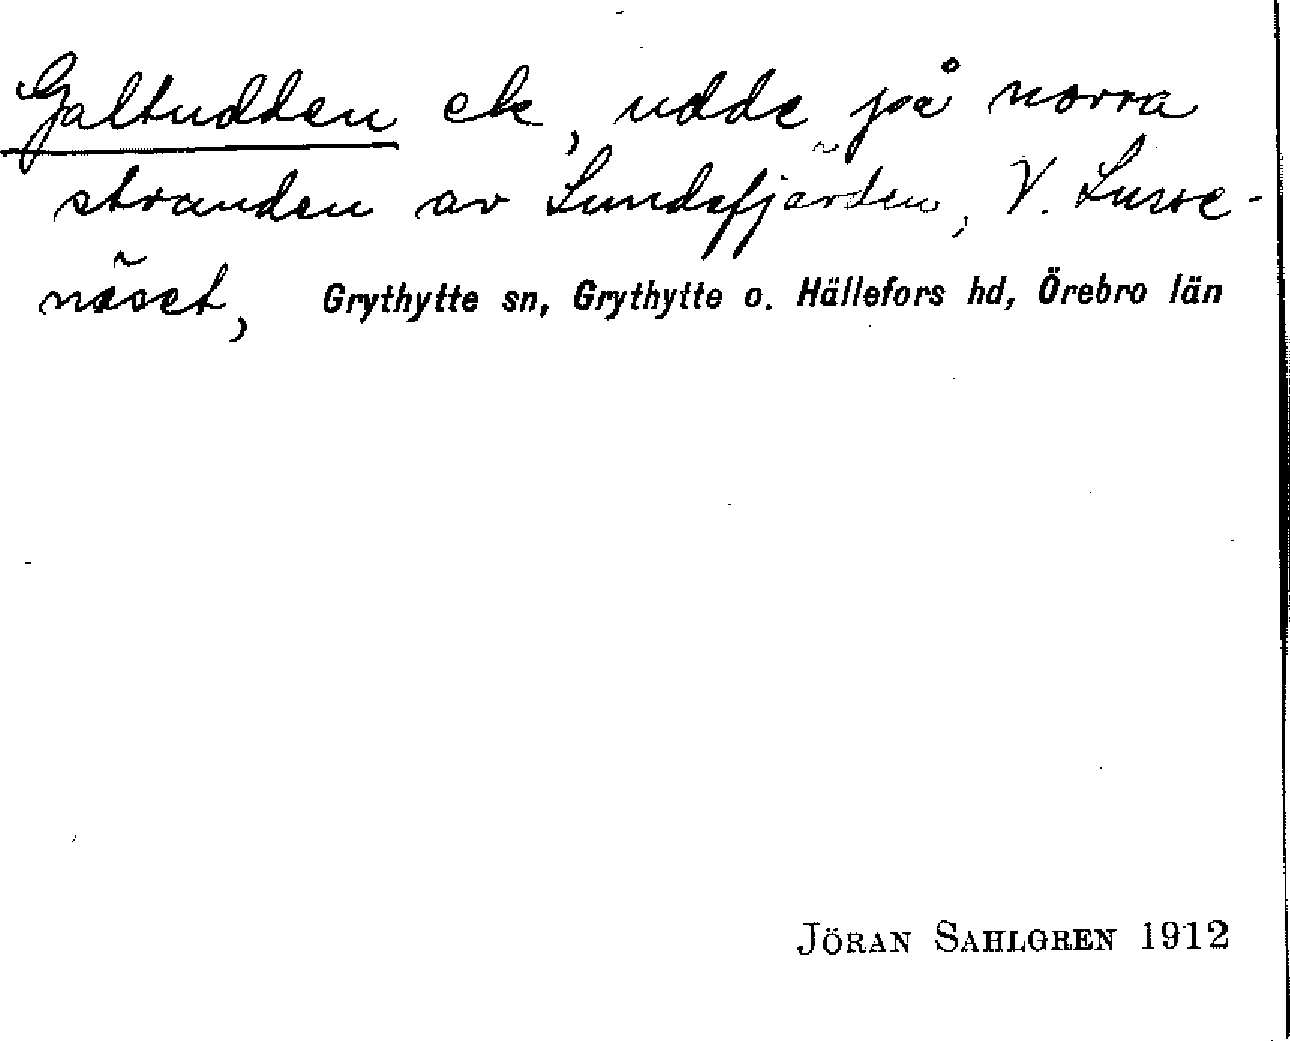 Galtudden ek, udde på norra
stranden av Sundsfjärden, V. Lusse-
näset, Grythytte sn, Grythytte o. Hällefors hd, Örebro län
JÖRAN SAHLGREN 1912